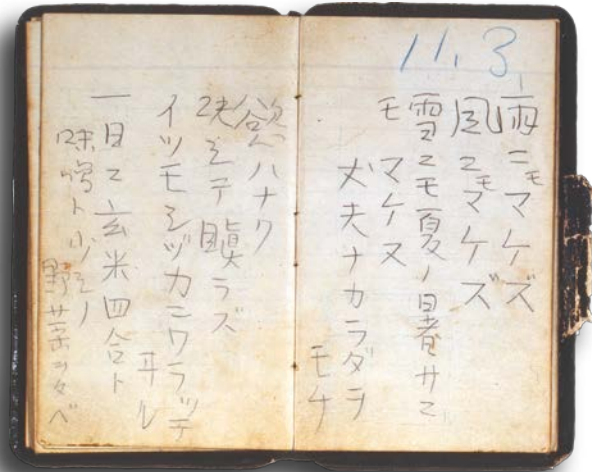 11.3,
雨ニモマケズ
風ニモマケズ
雪ニモ夏ノ暑サニ
モ マケヌ
丈夫ナカラダヲ
モチ
慾ハナク
決シテ瞋ラズ
イツモシヅカニワラッテ
ヰル
一日ニ玄米四合ト
味噌ト少シノ
野菜ヲタベ